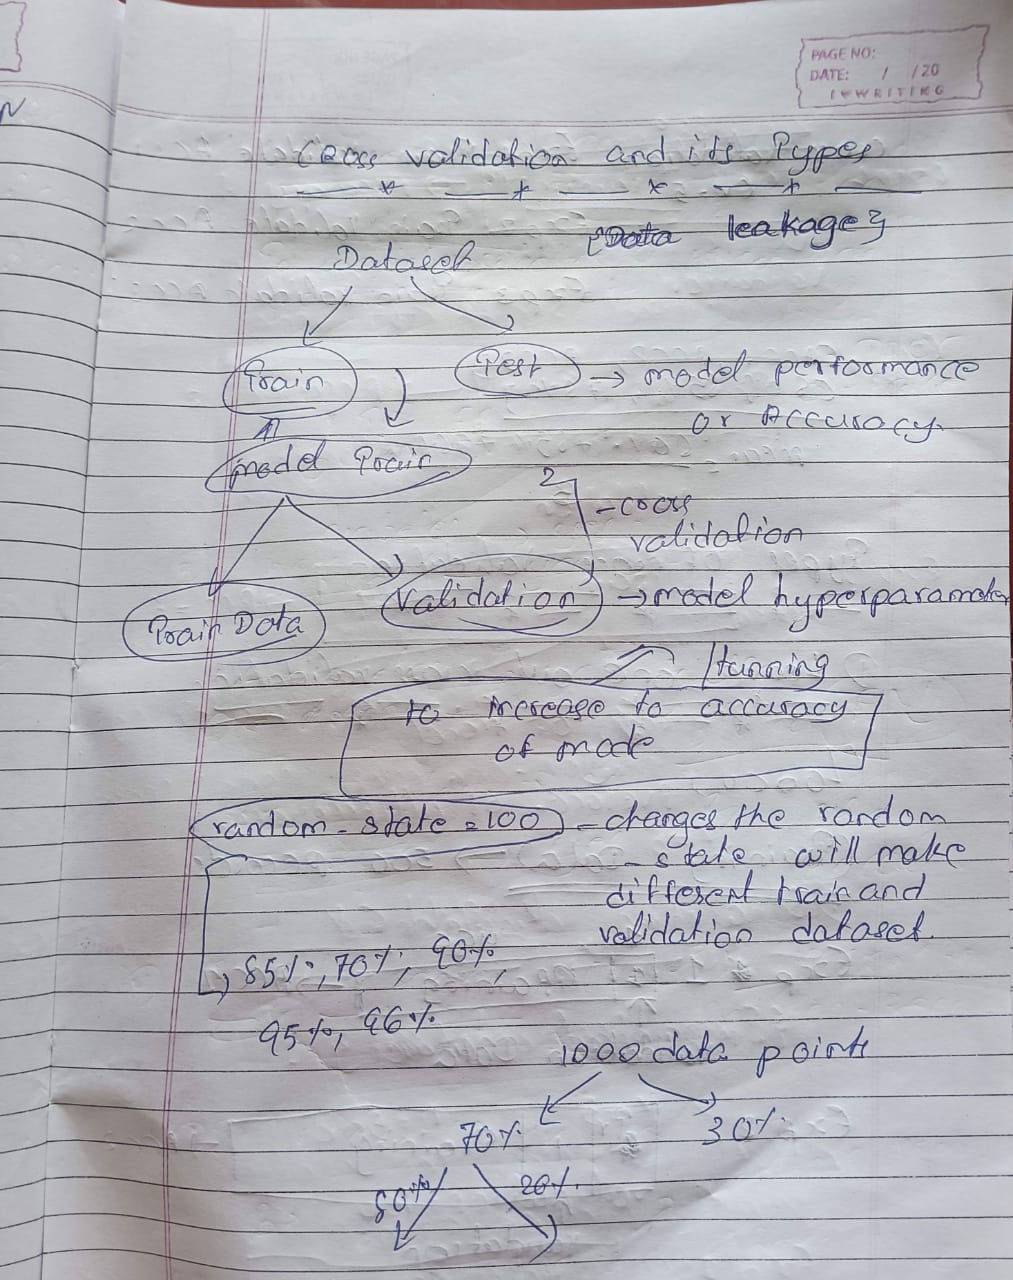 PAGE NO:
DATE: / /20
I ♥ WRITING
Cross validation and its Types
{Data leakage}
Dataset
Train
Test → model performance
or Accuracy.
model Train
- cross
validation
Train Data
Validation → model hyperparamater
tunning
to increase to accuracy
of mode
random - state = 100 - changes the random
- state will make
different train and
validation dataset.
85%, 70%, 90%,
95%, 96%
1000 data points
70% 30%
80% 20%